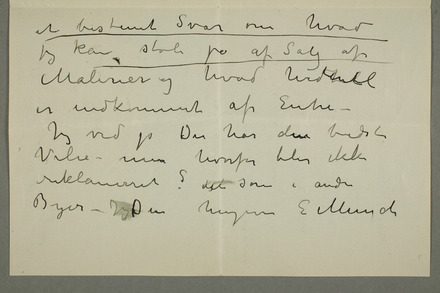 et bestemt Svar om hvad
jeg kan stole på af Salg af
Malerier og hvad hidtil
er indkommet af Entre –
Jeg ved jo Du har den bedste
Vilie – men hvorfor blir ikke
reklameret? det som i andre
Byer – Din hengivne E Munch